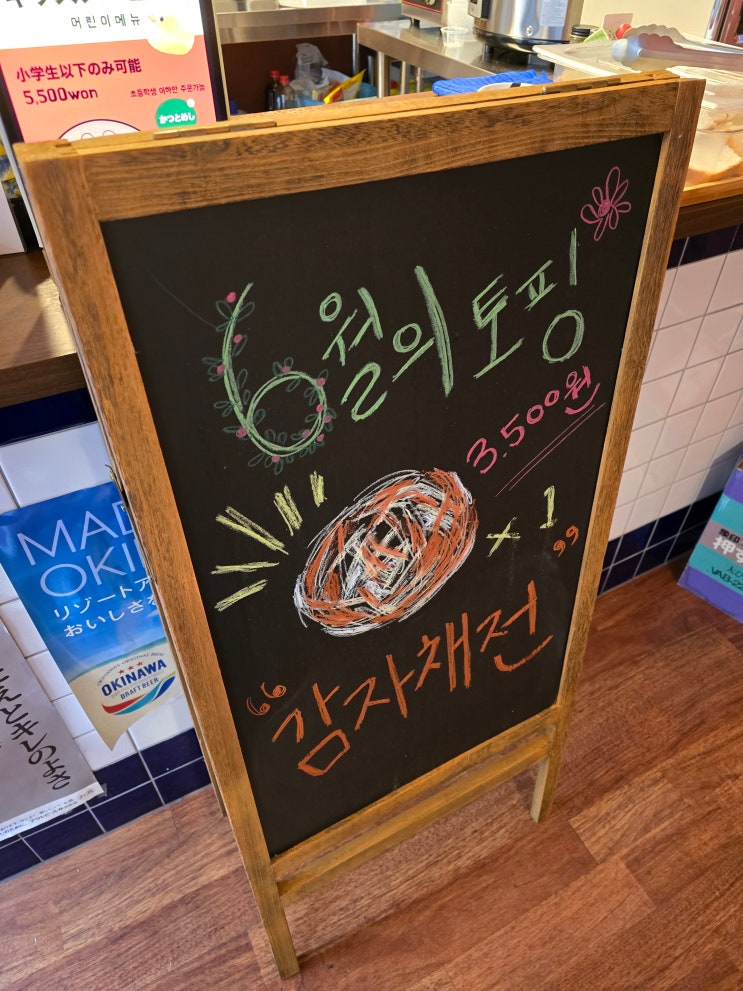 어린이메뉴
小学生以下のみ可能
5,500won
초등학생 이하만 주문가능
かつとめし
6월의 토핑
3.500원
x 1
“감자채전”
リゾートア
おいしさ
OKINAWA
DRAFT BEER
とキレのよさ